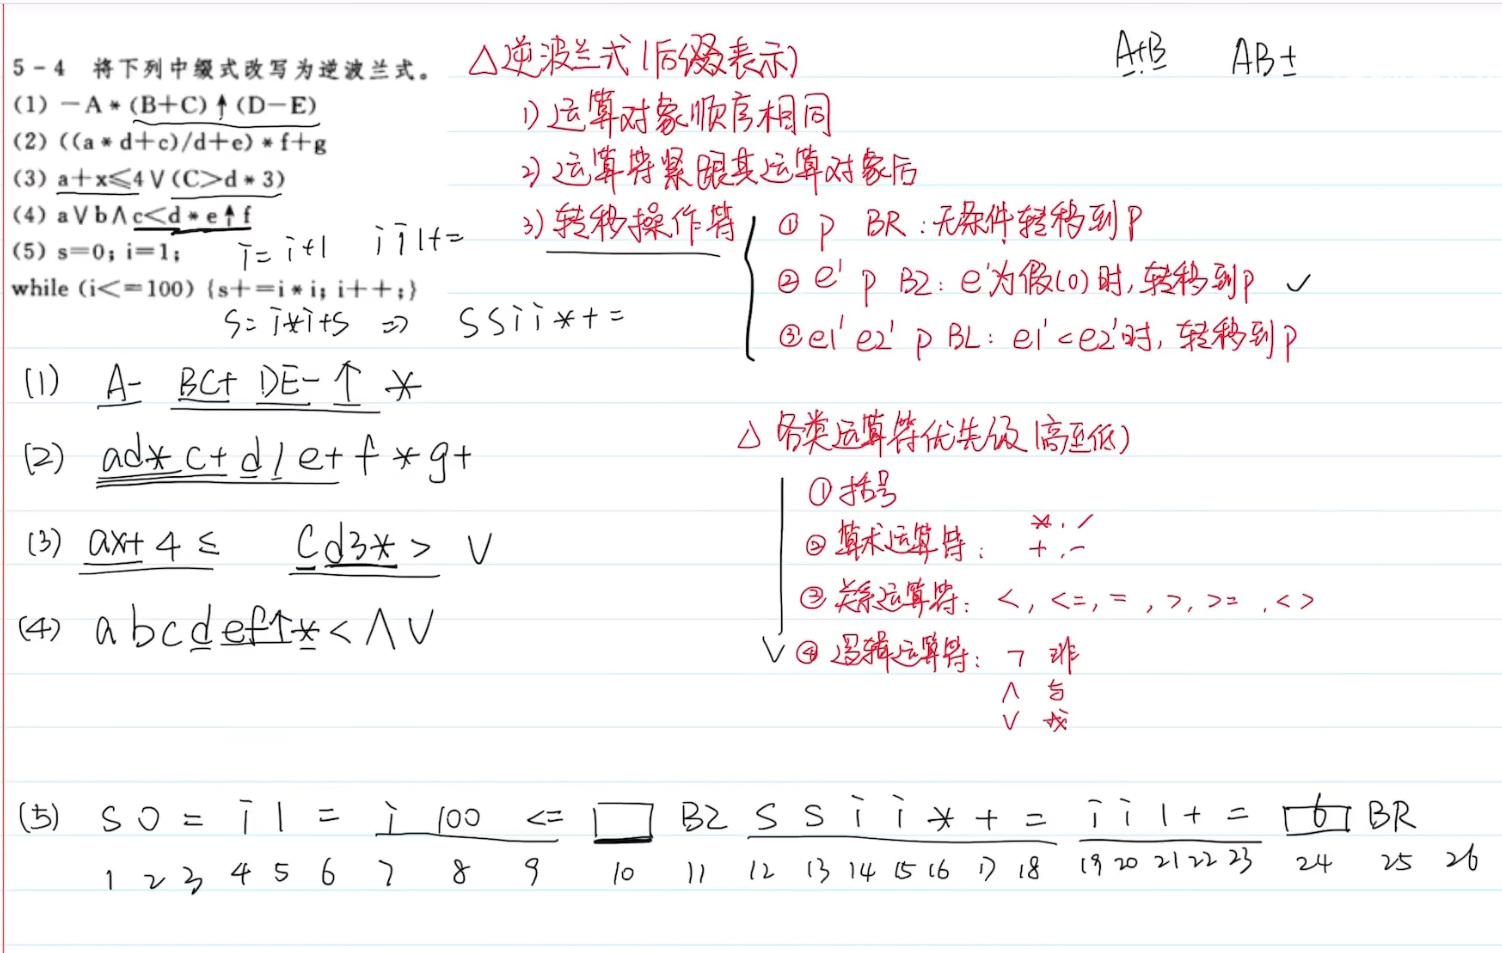 5-4 将下列中缀式改写为逆波兰式。
(1) －A * (B+C) ↑ (D-E)
(2) ((a * d+c)/d+e) * f+g
(3) a+x≤4 ∨ (C>d * 3)
(4) a∨b∧c<d * e↑f
(5) s=0; i=1;
while (i<=100) {s+=i * i; i++;}
i = i+1 i i 1 + =
S = i*i+S ⇒ S S i i * + =
△ 逆波兰式 (后缀表示)
A+B AB+
1) 运算对象顺序相同
2) 运算符紧跟其运算对象后
3) 转移操作符
① p BR : 无条件转移到P
② e' p BZ : e'为假(0)时, 转移到p ✓
③ e1' e2' p BL : e1' < e2'时, 转移到p
(1) A- BC+ DE- ↑ *
(2) ad* c+ d / e+ f * g+
(3) ax+ 4 ≤ C d3* > ∨
(4) a b c d e f ↑ * < ∧ ∨
△ 各类运算符优先级 (高至低)
① 括号
② 算术运算符 : *, /
+, -
③ 关系运算符 : <, <=, =, >, >=, <>
④ 逻辑运算符 : ¬ 非
∧ 与
∨ 或
(5) S 0 = i 1 = i 100 <= BZ S S i i * + = i i 1 + = 6 BR
1 2 3 4 5 6 7 8 9 10 11 12 13 14 15 16 17 18 19 20 21 22 23 24 25 26